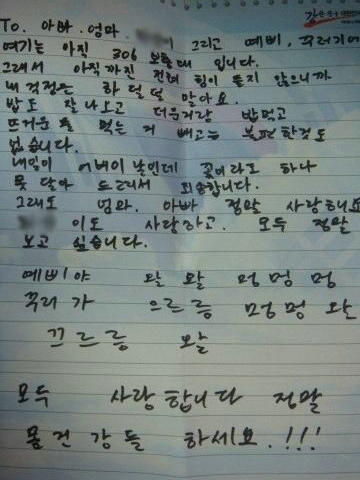 To. 아빠. 엄마. 그리고 예삐, 꾸러기에
여기는 아직 306 보충대 입니다.
그래서 아직까진 전혀 힘이 들지 않으니까
내 걱정은 하덜덜 말아요.
밥도 잘 나오고 더운거랑 밥먹고
뜨거운 물 먹는 거 빼고는 불편한것도
없습니다.
내일이 어버이 날인데 꽃이라도 하나
못 달아 드려서 죄송합니다.
그래도 엄마. 아빠 정말 사랑해요
이도 사랑하고. 모두 정말
보고 싶습니다.
예삐야 왈 왈 멍 멍 멍
꾸러가 으르릉 멍멍 왈
끄르릉 왈
모두 사랑합니다 정말
몸건강들 하세요.!!!